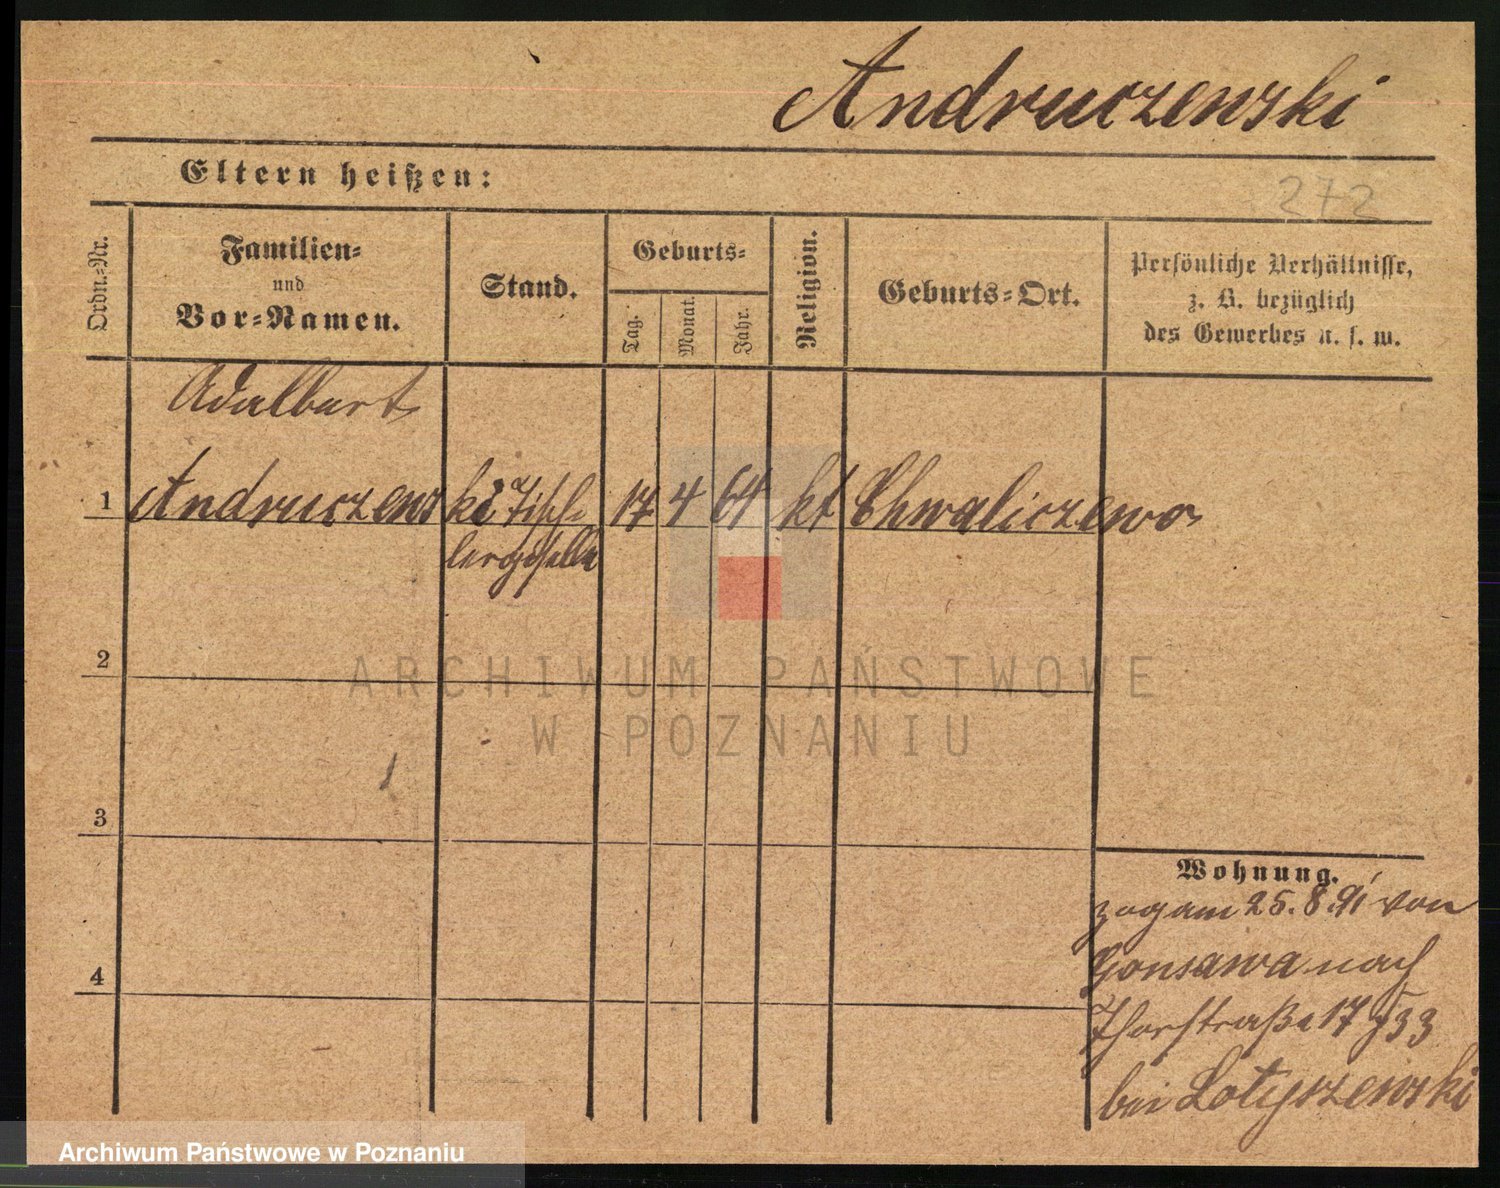 Andruczewski
Eltern heißen:
272
Ordn.-Nr.
Familien-
und
Vor-Namen.
Stand.
Geburts-
Tag.
Monat.
Jahr.
Religion.
Geburts-Ort.
Persönliche Verhältnisse,
z. B. bezüglich
des Gewerbes u. s. w.
Adalbert
1 Andruczewski Tisch- 17 4 64 kt Chwaliczewo
lergeselle
2
ARCHIWUM PAŃSTWOWE
W POZNANIU
3
4
Wohnung.
zog am 25.8.91 von
Gonsawa nach
Thorstraße 17 33
bei Lotyszewski
Archiwum Państwowe w Poznaniu